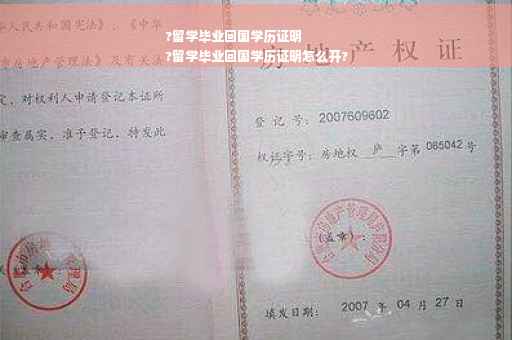 ?留学毕业回国学历证明
?留学毕业回国学历证明怎么开?
人民共和国宪法》、《中华
房地产管理法》及有关法
，对权利人申请登记本证所
审查属实，准予登记，特发此
房地产权证
登记号：2007609602
权证字号：房地权 庐 字第 065042 号
(盖章)：
填发日期： 2007 年 04 月 27 日